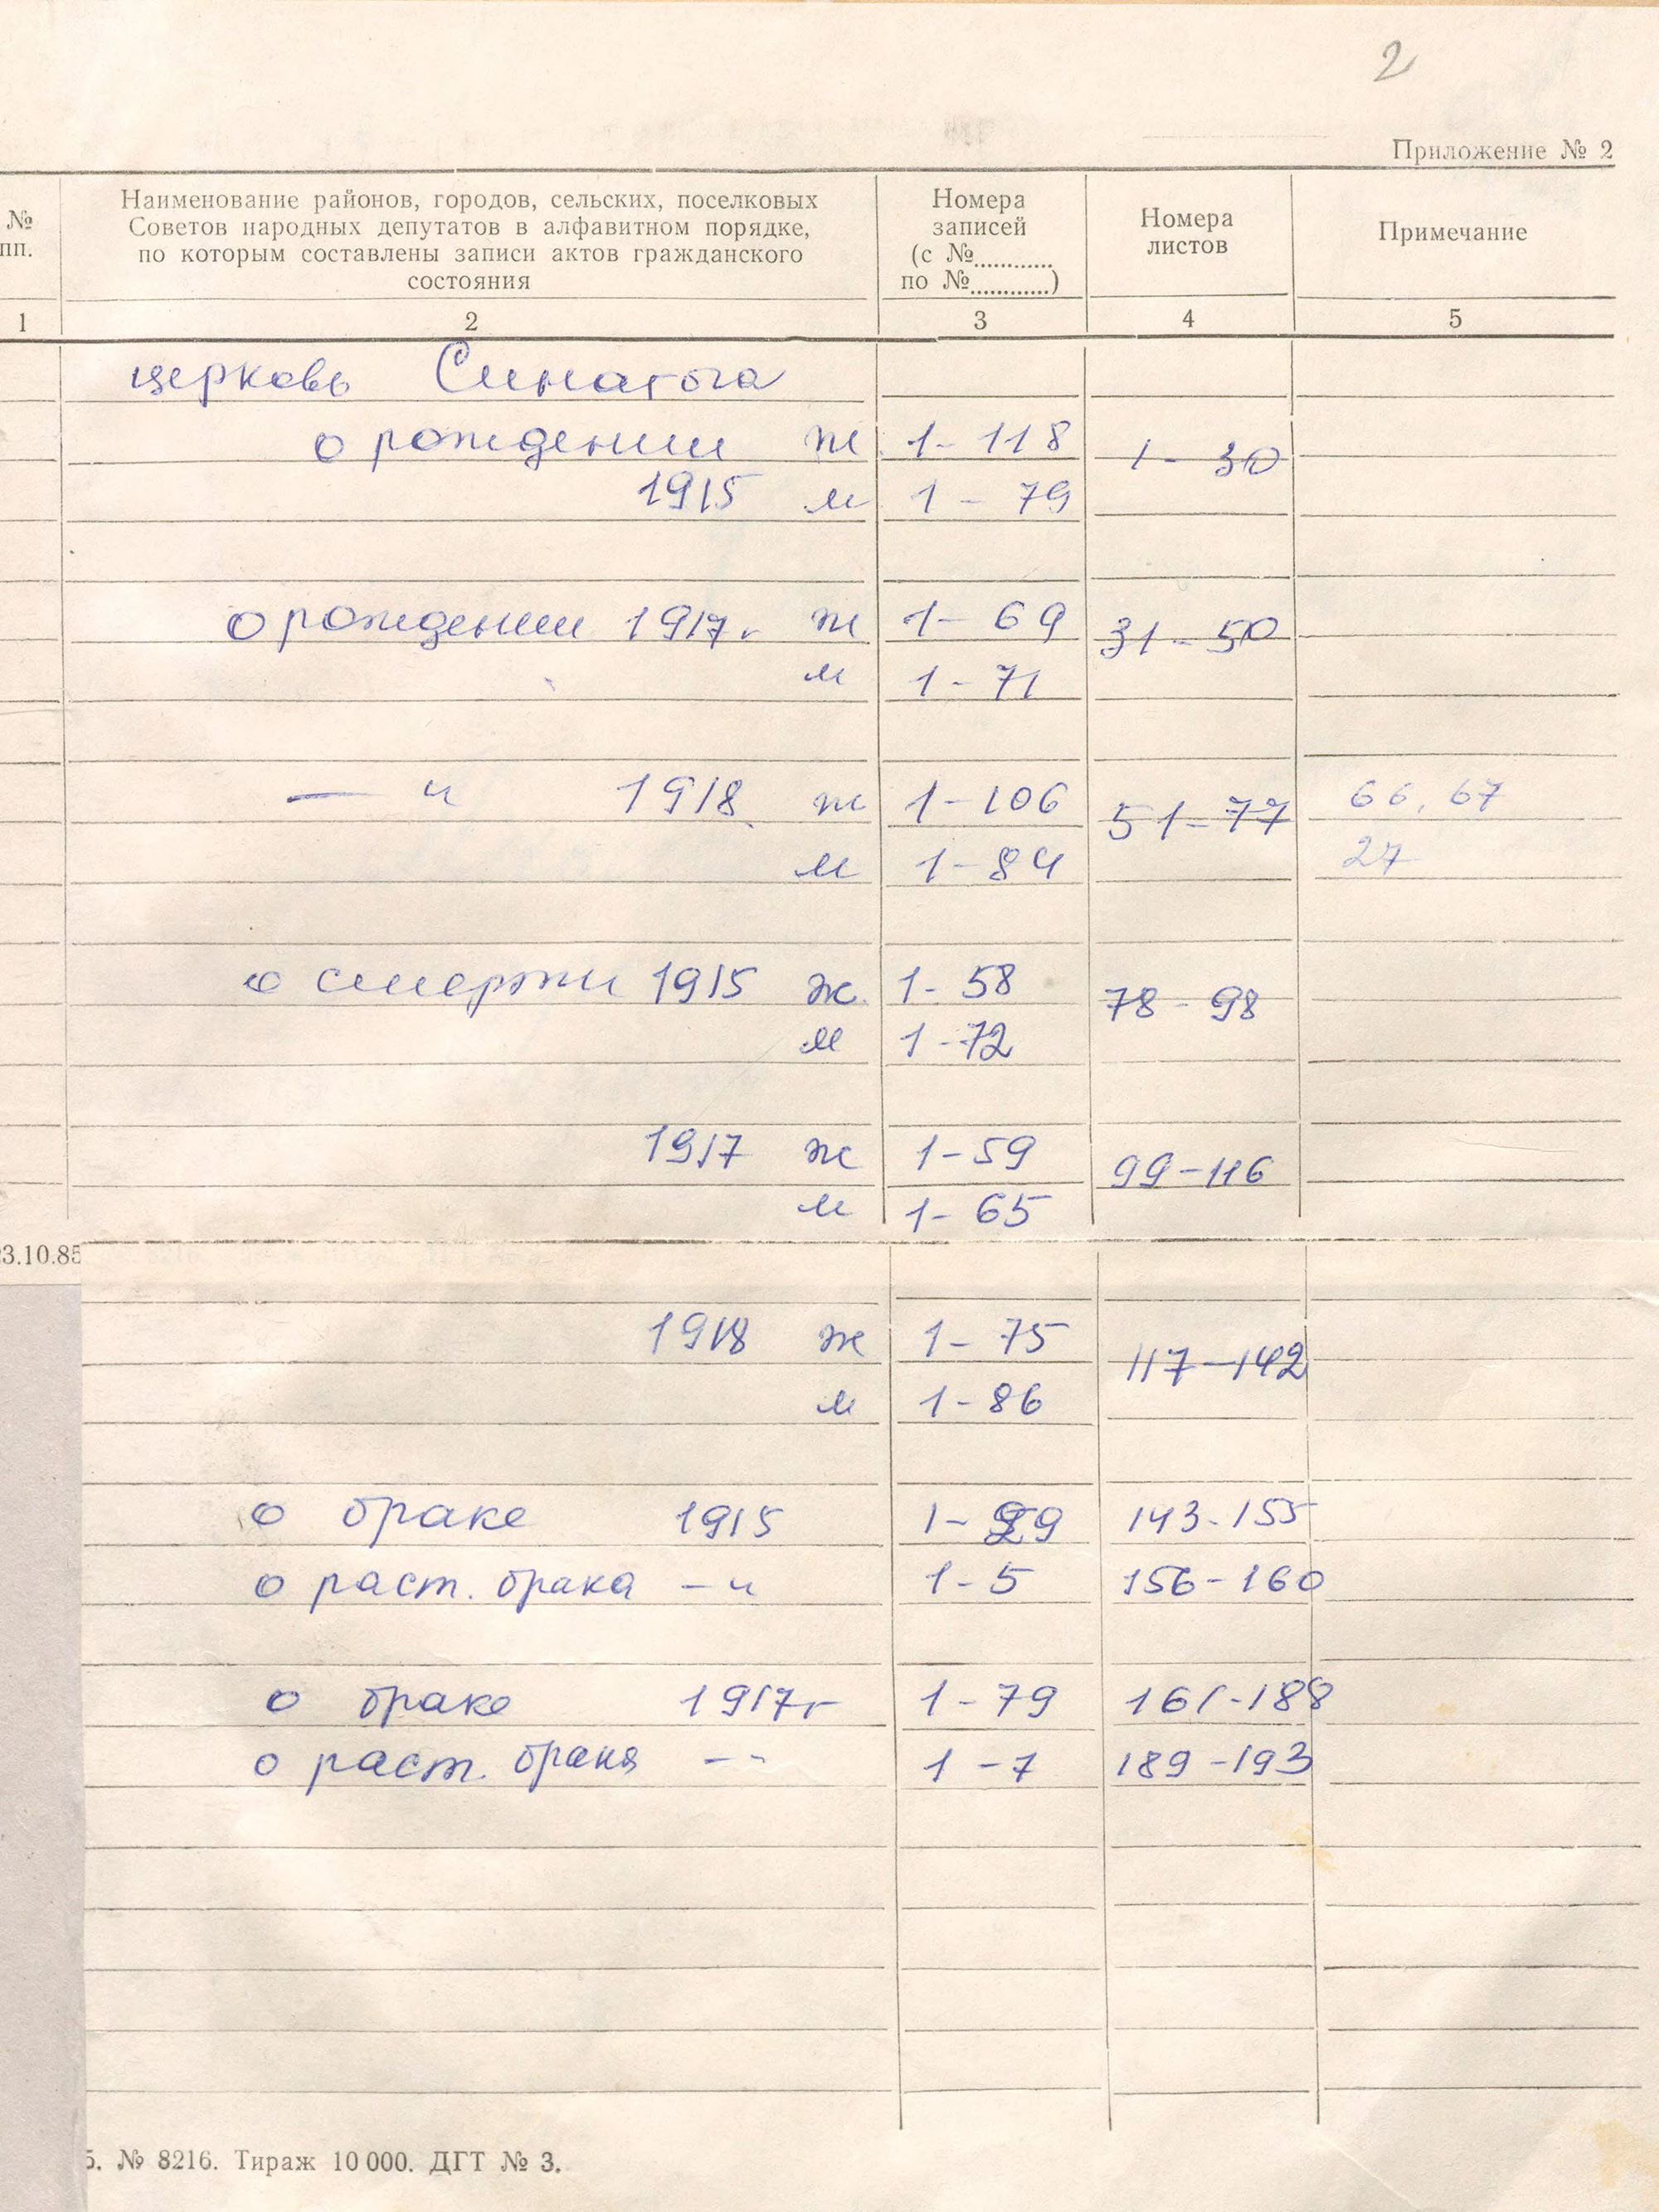 2
Приложение № 2
№ пп.
Наименование районов, городов, сельских, поселковых
Советов народных депутатов в алфавитном порядке,
по которым составлены записи актов гражданского
состояния
Номера
записей
(с №............
по №............)
Номера
листов
Примечание
1 2 3 4 5
церковь Синагога
о рождении ж 1-118 1-30
1915 м 1-79
о рождении 1917г ж 1-69 31-50
м 1-71
— " 1918 ж 1-106 51-77 66, 67
м 1-84 27
о смерти 1915 ж 1-58 78-98
м 1-72
1917 ж 1-59 99-116
м 1-65
3.10.85
1918 ж 1-75 117-142
м 1-86
о браке 1915 143-155
о раст. брака -"- 1-5 156-160
о браке 1917г 1-79 161-188
о раст. брака -"- 1-7 189-193
5. № 8216. Тираж 10 000. ДГТ № 3.